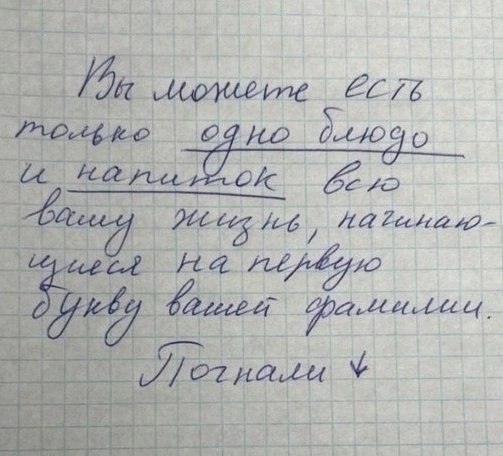 Вы можете есть
только одно блюдо
и напиток всю
вашу жизнь, начинаю-
щиеся на первую
букву вашей фамилии.
Погнали ↓